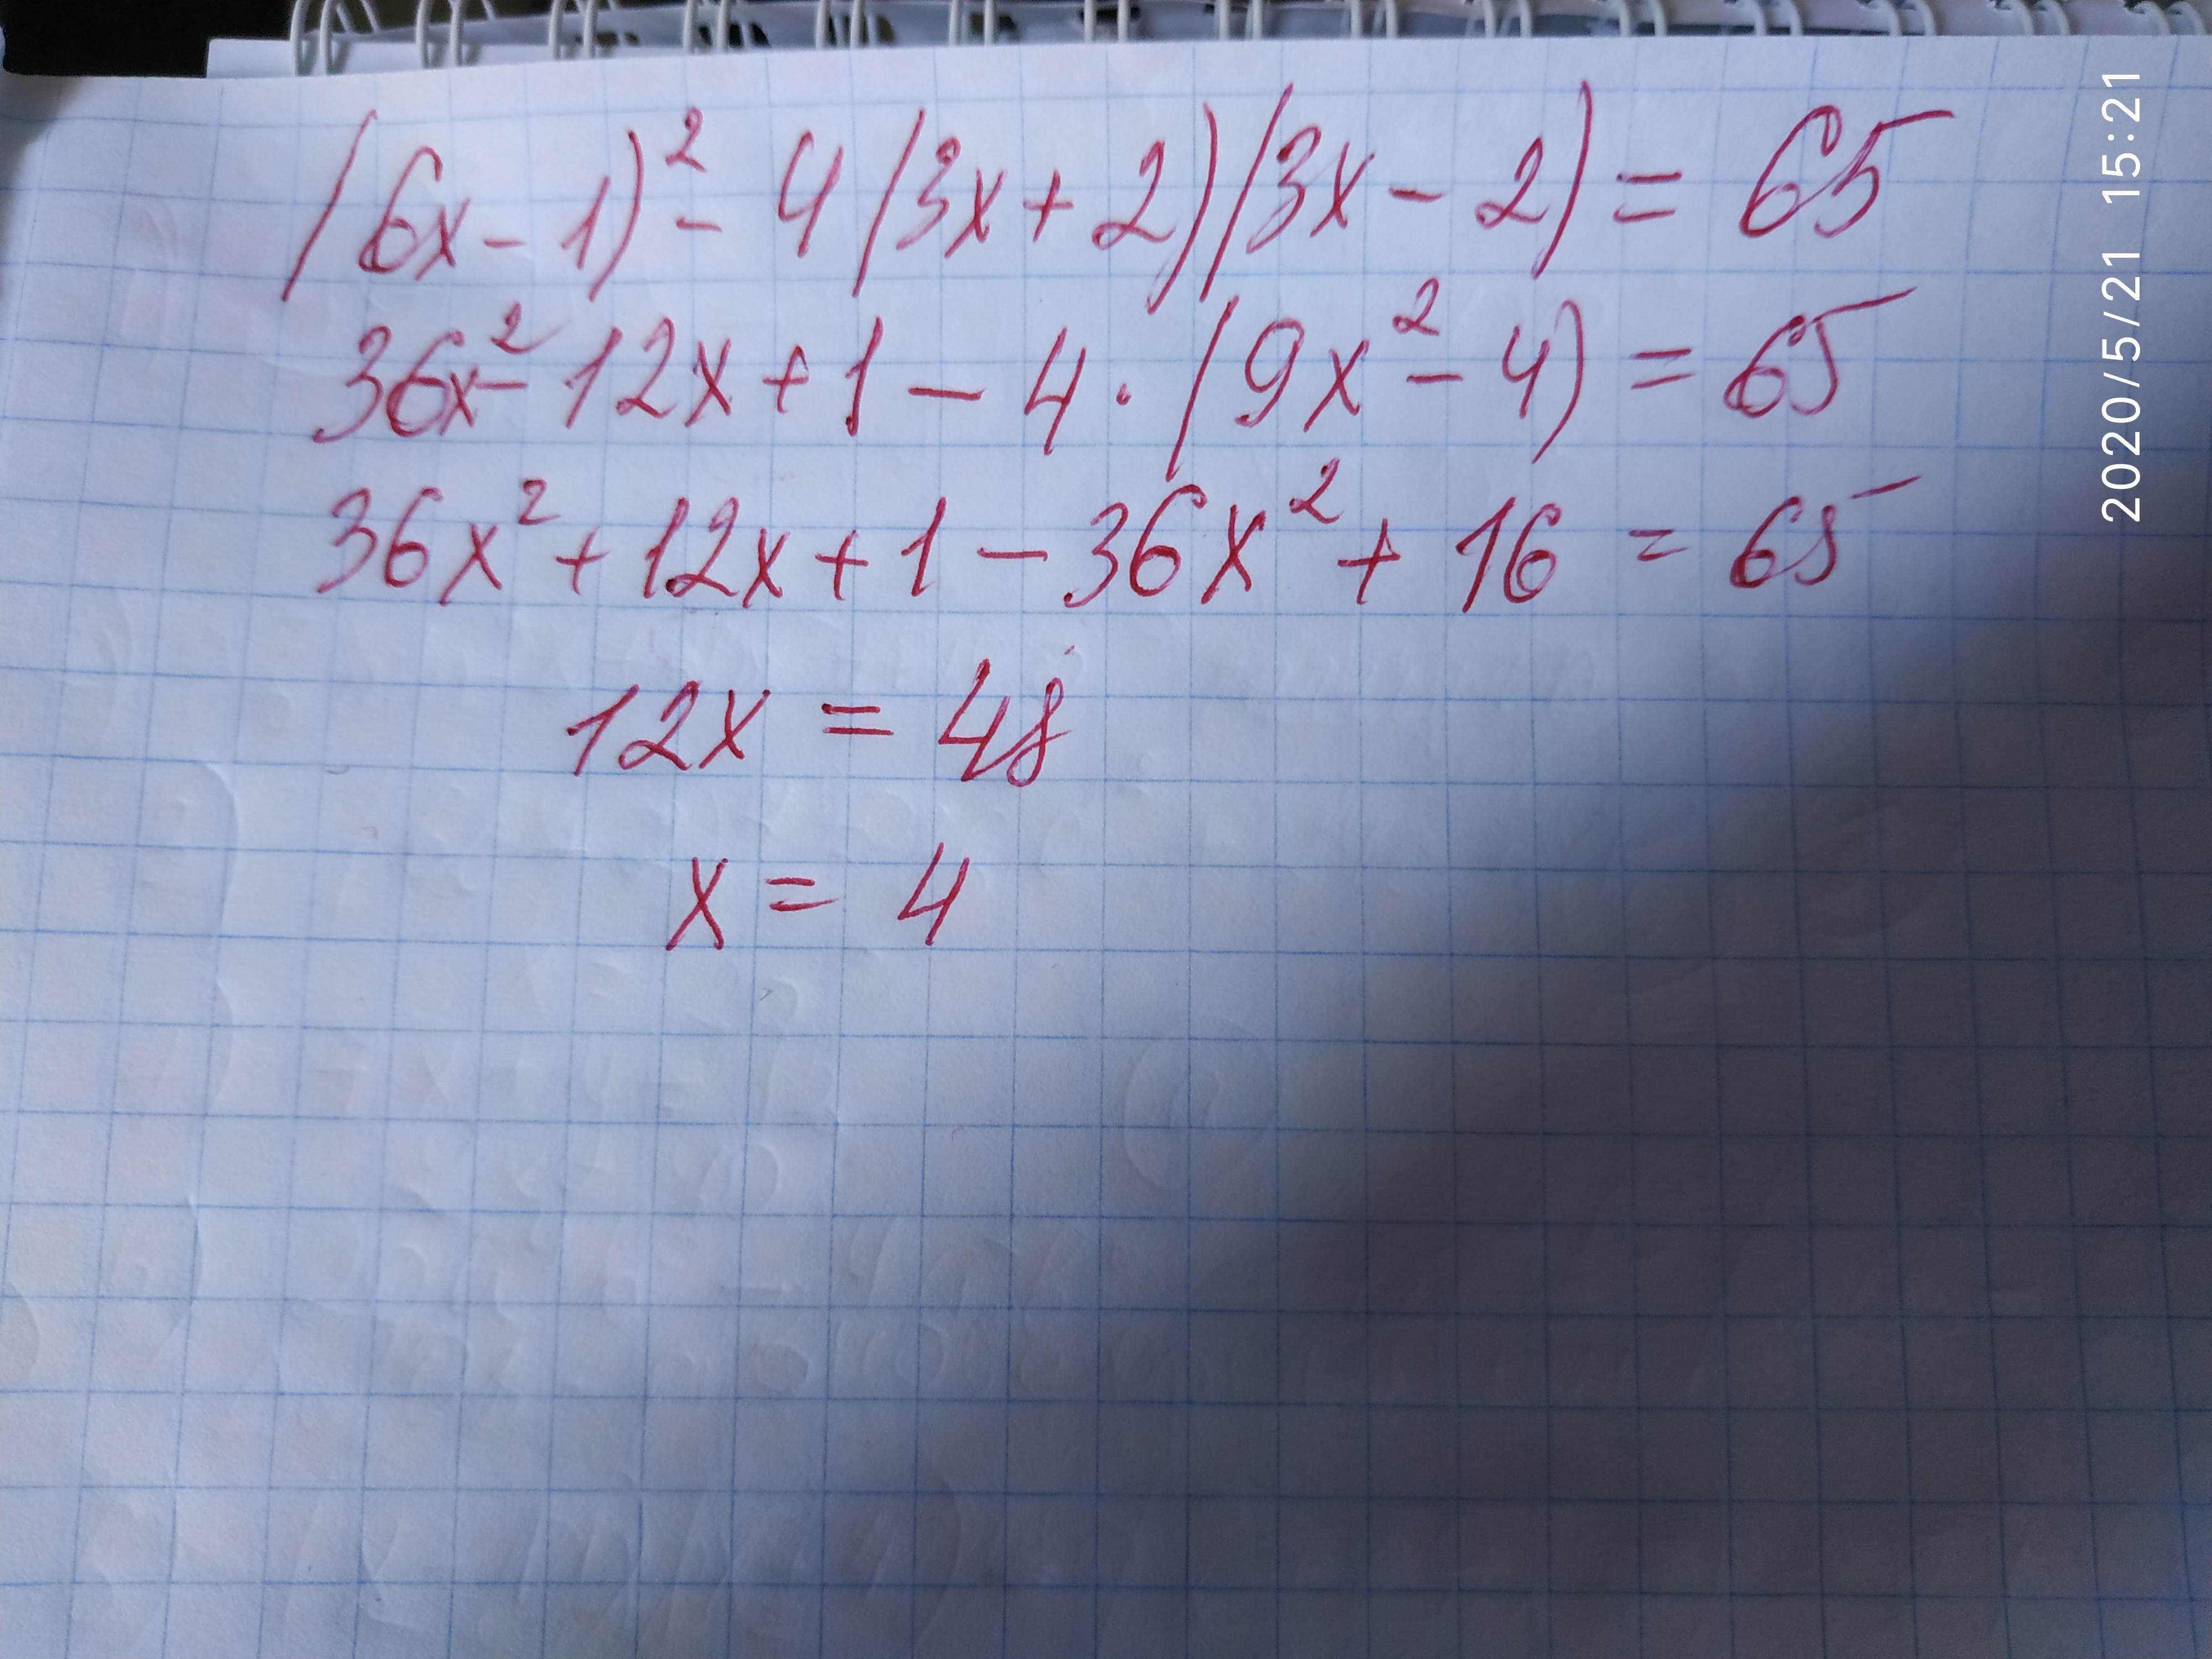 (6x-1)² - 4(3x+2)(3x-2) = 65
36x² - 12x + 1 - 4 · (9x² - 4) = 65
36x² + 12x + 1 - 36x² + 16 = 65
12x = 48
x = 4
2020/5/21 15:21